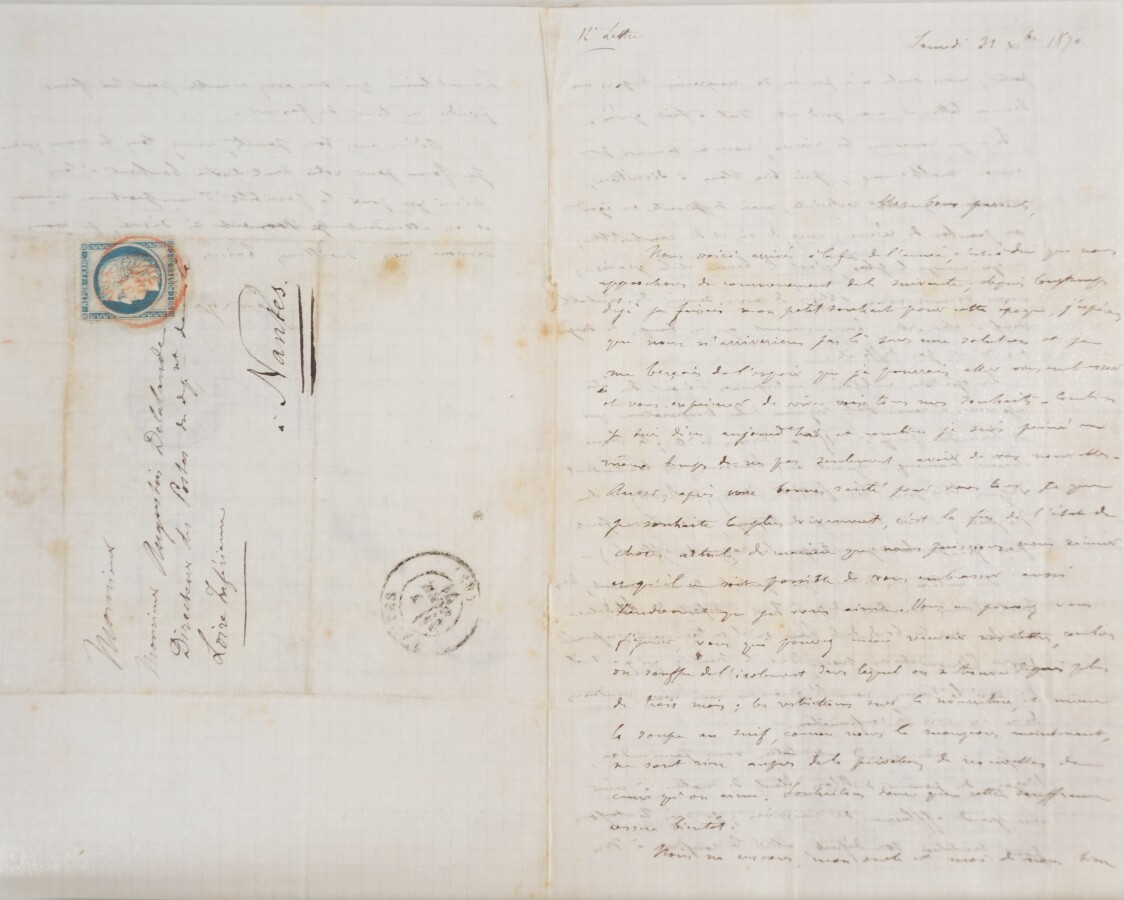 Monsieur
Monsieur Augustin Delalande
Directeur des Postes du dépt de
Loire Inférieure
à Nantes.
12e Lettre
Samedi 31 Xbre 1870.
Mes bons parents,
Nous voici arrivés à la fin de l'année, c'est à dire que nous
approchons du commencement de la suivante ; depuis longtemps
déjà je faisais mon petit souhait pour cette époque, j'espérais
que nous n'arriverions pas là sans une solution et je
me berçais de l'espoir que je pourrais aller vous embrasser
et vous exprimer de vive voix tous mes souhaits. Combien
je suis déçu aujourd'hui, et combien je suis peiné en
même temps de ne pas seulement avoir de vos nouvelles.
Aussi, après une bonne santé pour vous tous, ce que
je souhaite le plus vivement, c'est la fin de l'état de
choses actuel, de manière que nous puissions nous réunir
et qu'il me soit possible de vous embrasser aussi
tendrement que je vous aime. Vous ne pouvez vous
figurer, vous qui pouvez recevoir nos lettres, combien
on souffre de l'isolement dans lequel on se trouve depuis plus
de trois mois ; les restrictions sur la nourriture, et même
la soupe au suif, comme nous la mangeons maintenant,
ne sont rien auprès de la privation de nouvelles de
ceux qu'on aime. Souhaitons donc que cette souffrance
cesse bientôt.
Nous ne cessons, mon oncle et moi de nous